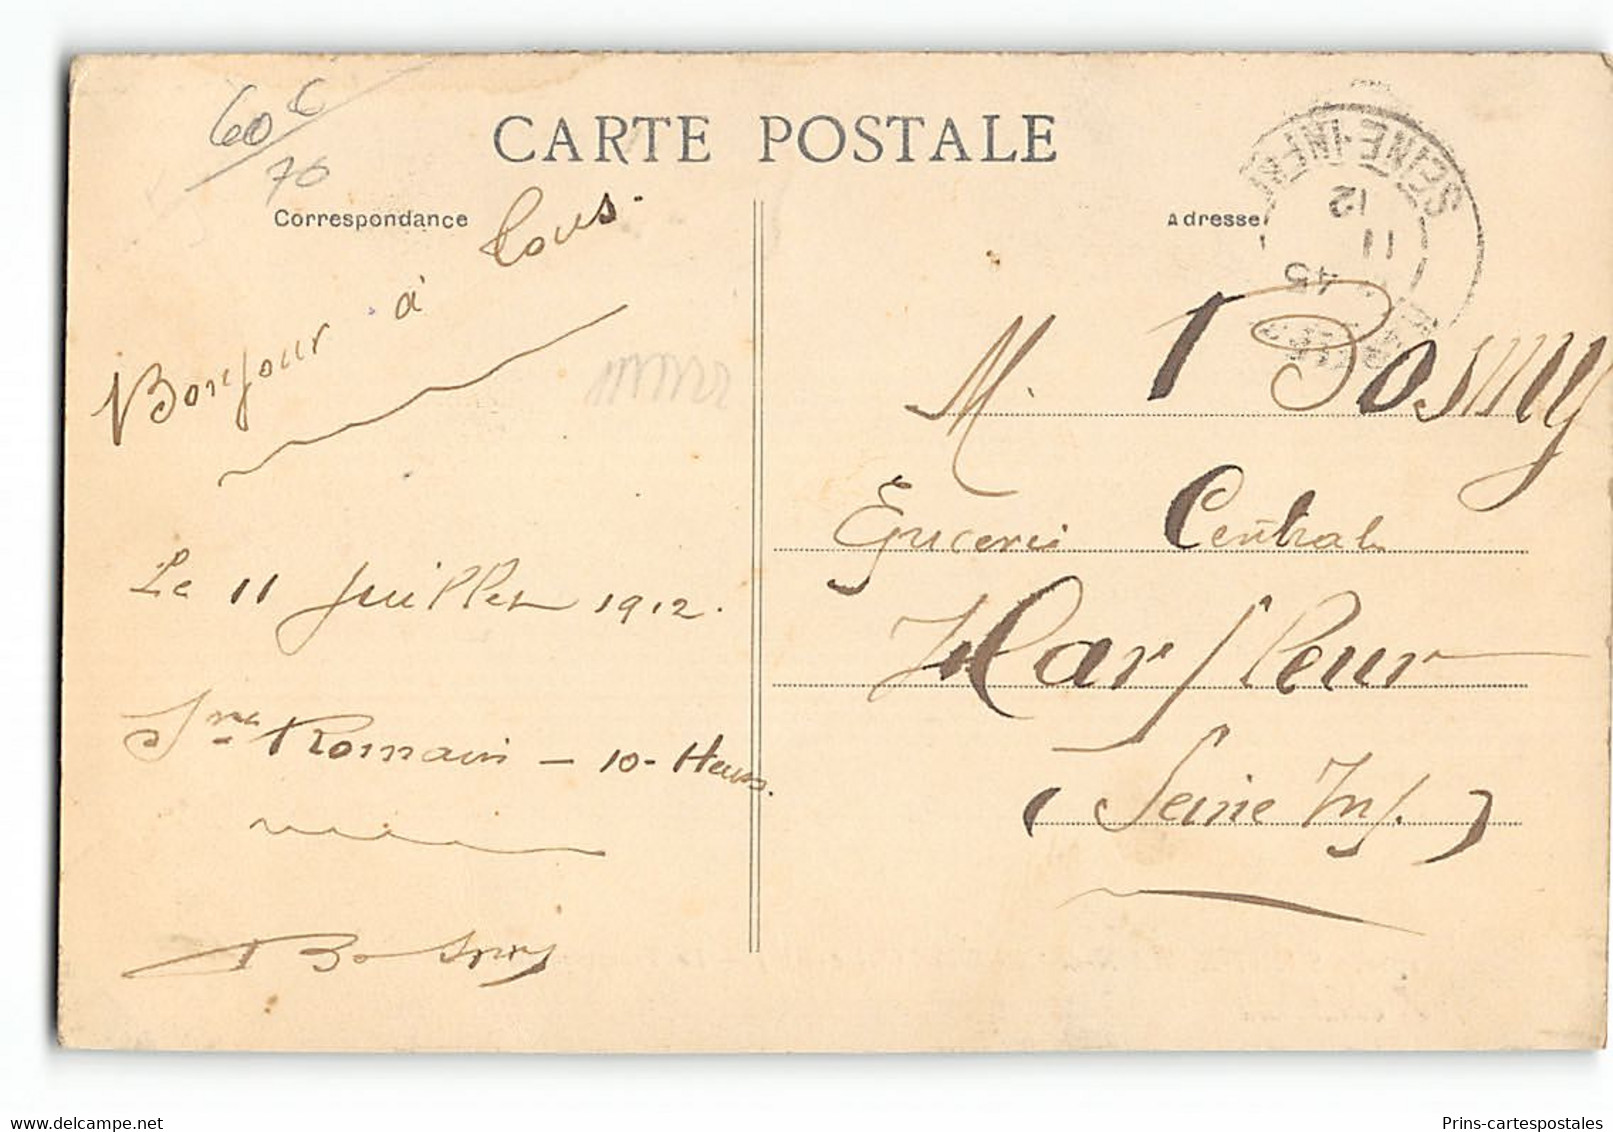 60 6
70
CARTE POSTALE
Correspondance
Adresse
SEINE-INFRE
12
11
45
Bonjour à tous.
Le 11 Juillet 1912.
Romain - 10 - Heures.
Bosmy
M. Bosmy
Epicerie Centrale
Harfleur
(Seine Inf.)
Prins-cartespostales
delcampe.net